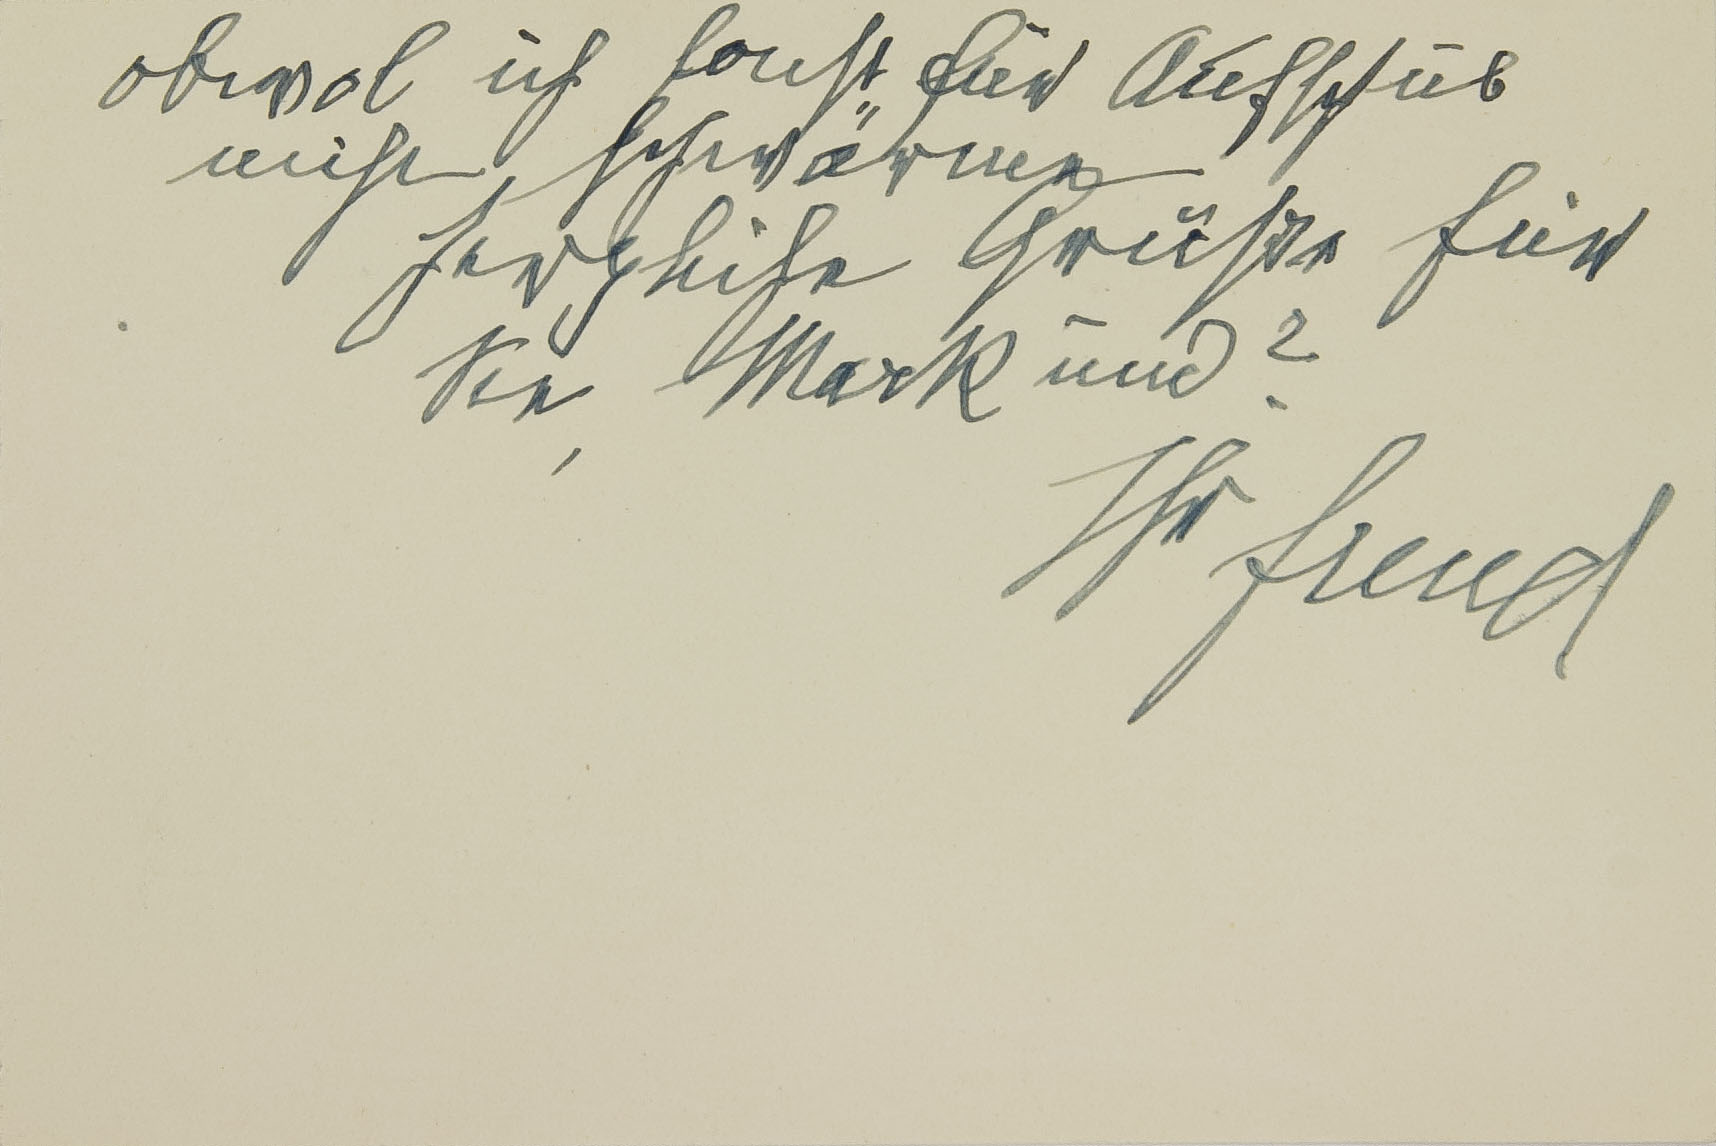 obwol ich sonst für Aufschub
nicht schwärme
Herzliche Grüße für
Sie, Mark und?
Ihr Freud